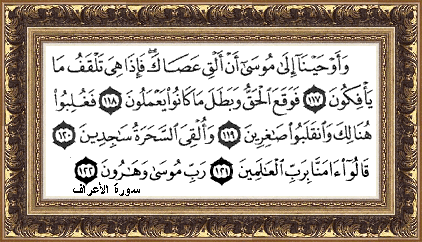 وَأَوْحَيْنَآ إِلَىٰ مُوسَىٰٓ أَنْ أَلْقِ عَصَاكَ ۖ فَإِذَا هِىَ تَلْقَفُ مَا
يَأْفِكُونَ ۝١١٧ فَوَقَعَ ٱلْحَقُّ وَبَطَلَ مَا كَانُوا۟ يَعْمَلُونَ ۝١١٨ فَغُلِبُوا۟
هُنَالِكَ وَٱنقَلَبُوا۟ صَٰغِرِينَ ۝١١٩ وَأُلْقِىَ ٱلسَّحَرَةُ سَٰجِدِينَ ۝١٢٠
قَالُوٓا۟ ءَامَنَّا بِرَبِّ ٱلْعَٰلَمِينَ ۝١٢١ رَبِّ مُوسَىٰ وَهَٰرُونَ ۝١٢٢
سورة الأعراف